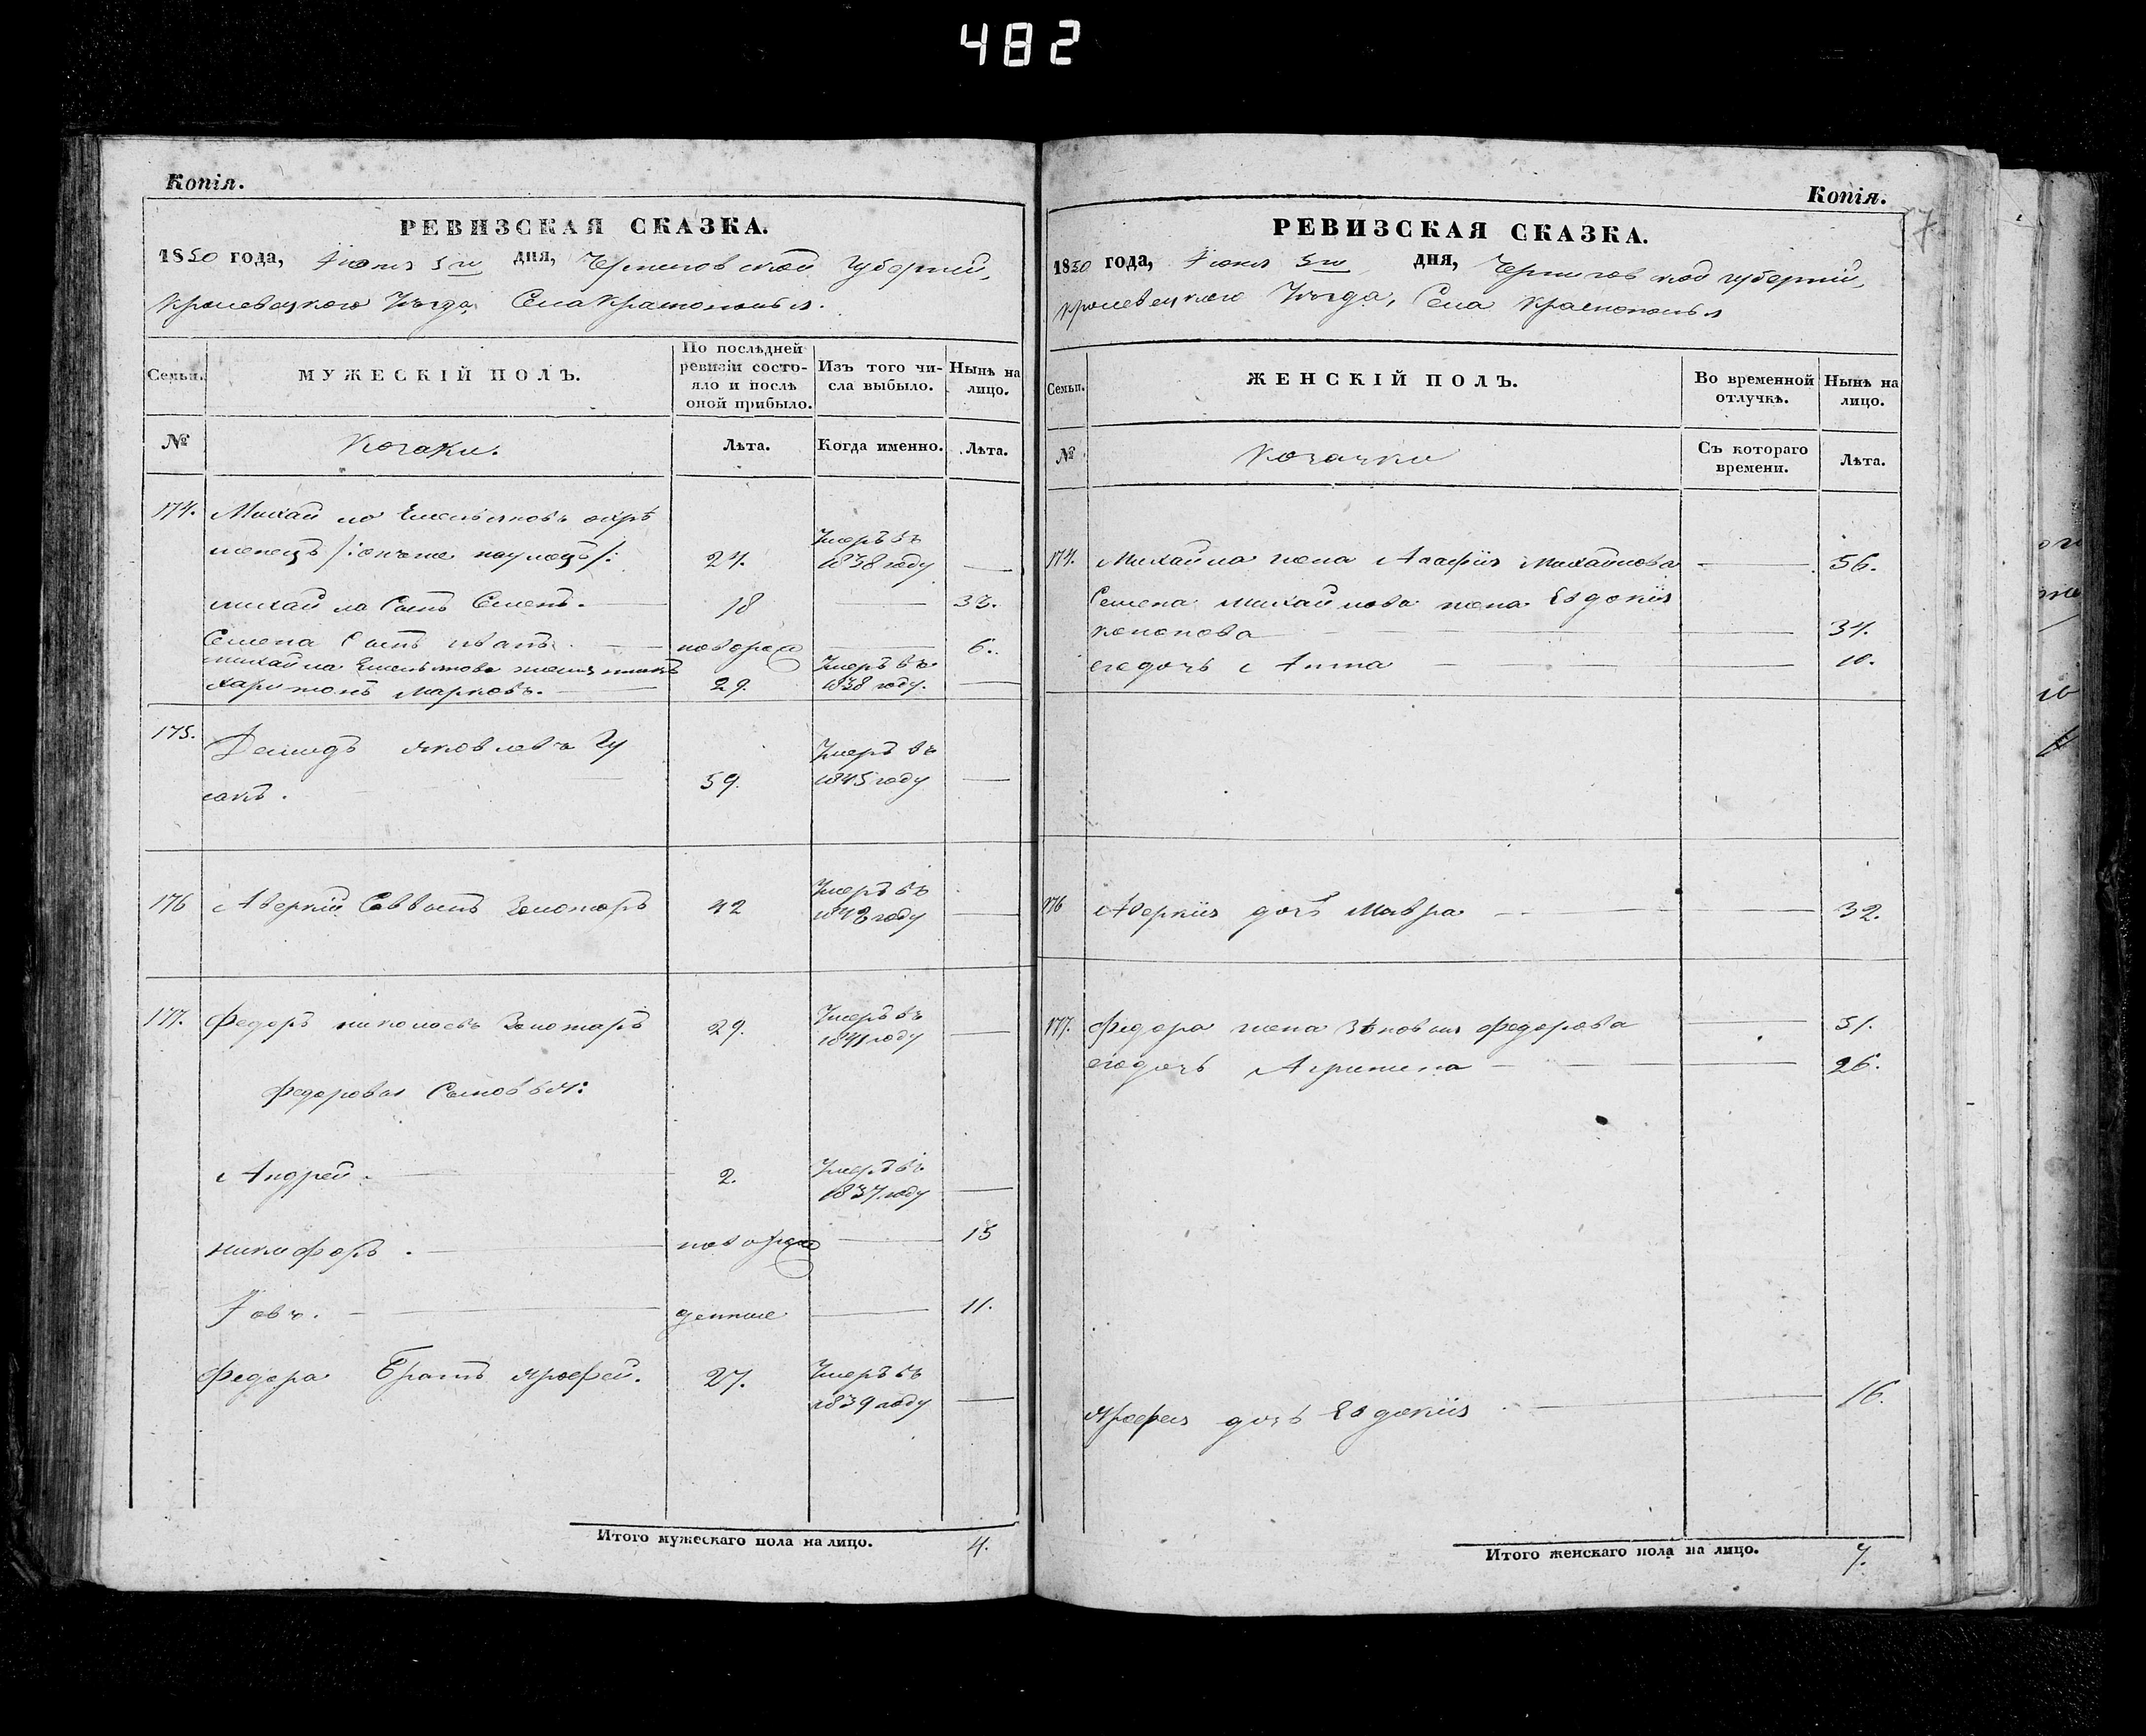 482
Копія.
РЕВИЗСКАЯ СКАЗКА.
1850 года, Іюня 5го дня, Черниговской Губерніи,
Кролевецкого Уѣзда Села Краснополья.
Семьи.
МУЖЕСКІЙ ПОЛЪ.
По послѣдней
ревизіи состо-
яло и послѣ
оной прибыло.
Изъ того чи-
сла выбыло.
Нынѣ на
лицо.
№
Козаки.
Лѣта.
Когда именно.
Лѣта.
174. Михайло Емельяновъ
24. Умеръ въ 1838 году —
Михайла Сынъ Семенъ. 18 — 33.
Семена Сынъ иванъ. новорож — 6.
Михайла Емельянова
Харитонъ Марковъ. 29. Умеръ въ 1838 году. —
175. Демидъ Яковлевъ Гу
сакъ. 59. Умеръ въ 1845 году —
176 Аверкій Саввинъ Золотарь 42 Умеръ въ 1848 году —
177. Федоръ николаевъ Золотарь 29. Умеръ въ 1841 году —
Федоровы Сыновья:
Андрей. 2. Умеръ въ 1837 году —
никифоръ. новорож — 15
Іовъ. — 11.
Федора Братъ Ярофей. 27. Умеръ въ 1839 году —
Итого мужескаго пола на лицо. 4.
Копія.
37.
РЕВИЗСКАЯ СКАЗКА.
1850 года, Іюня 5го дня, Черниговской губерніи,
Кролевецкого Уѣзда, Села Краснополья
Семьи.
ЖЕНСКІЙ ПОЛЪ.
Во временной
отлучкѣ.
Нынѣ на
лицо.
№
Козачки
Съ котораго
времени.
Лѣта.
174. Михайла жена Агафія Михайлова — 56.
Семена Михайлова жена Евдокія
кононова — 34.
его дочь Анна — 10.
176 Аверкія дочь Мавра — 32.
177. Федора жена Зѣновія Федорова — 51.
его дочь Агрипина — 26.
Ярофея дочь Евдокія — 16.
Итого женскаго пола на лицо. 7.